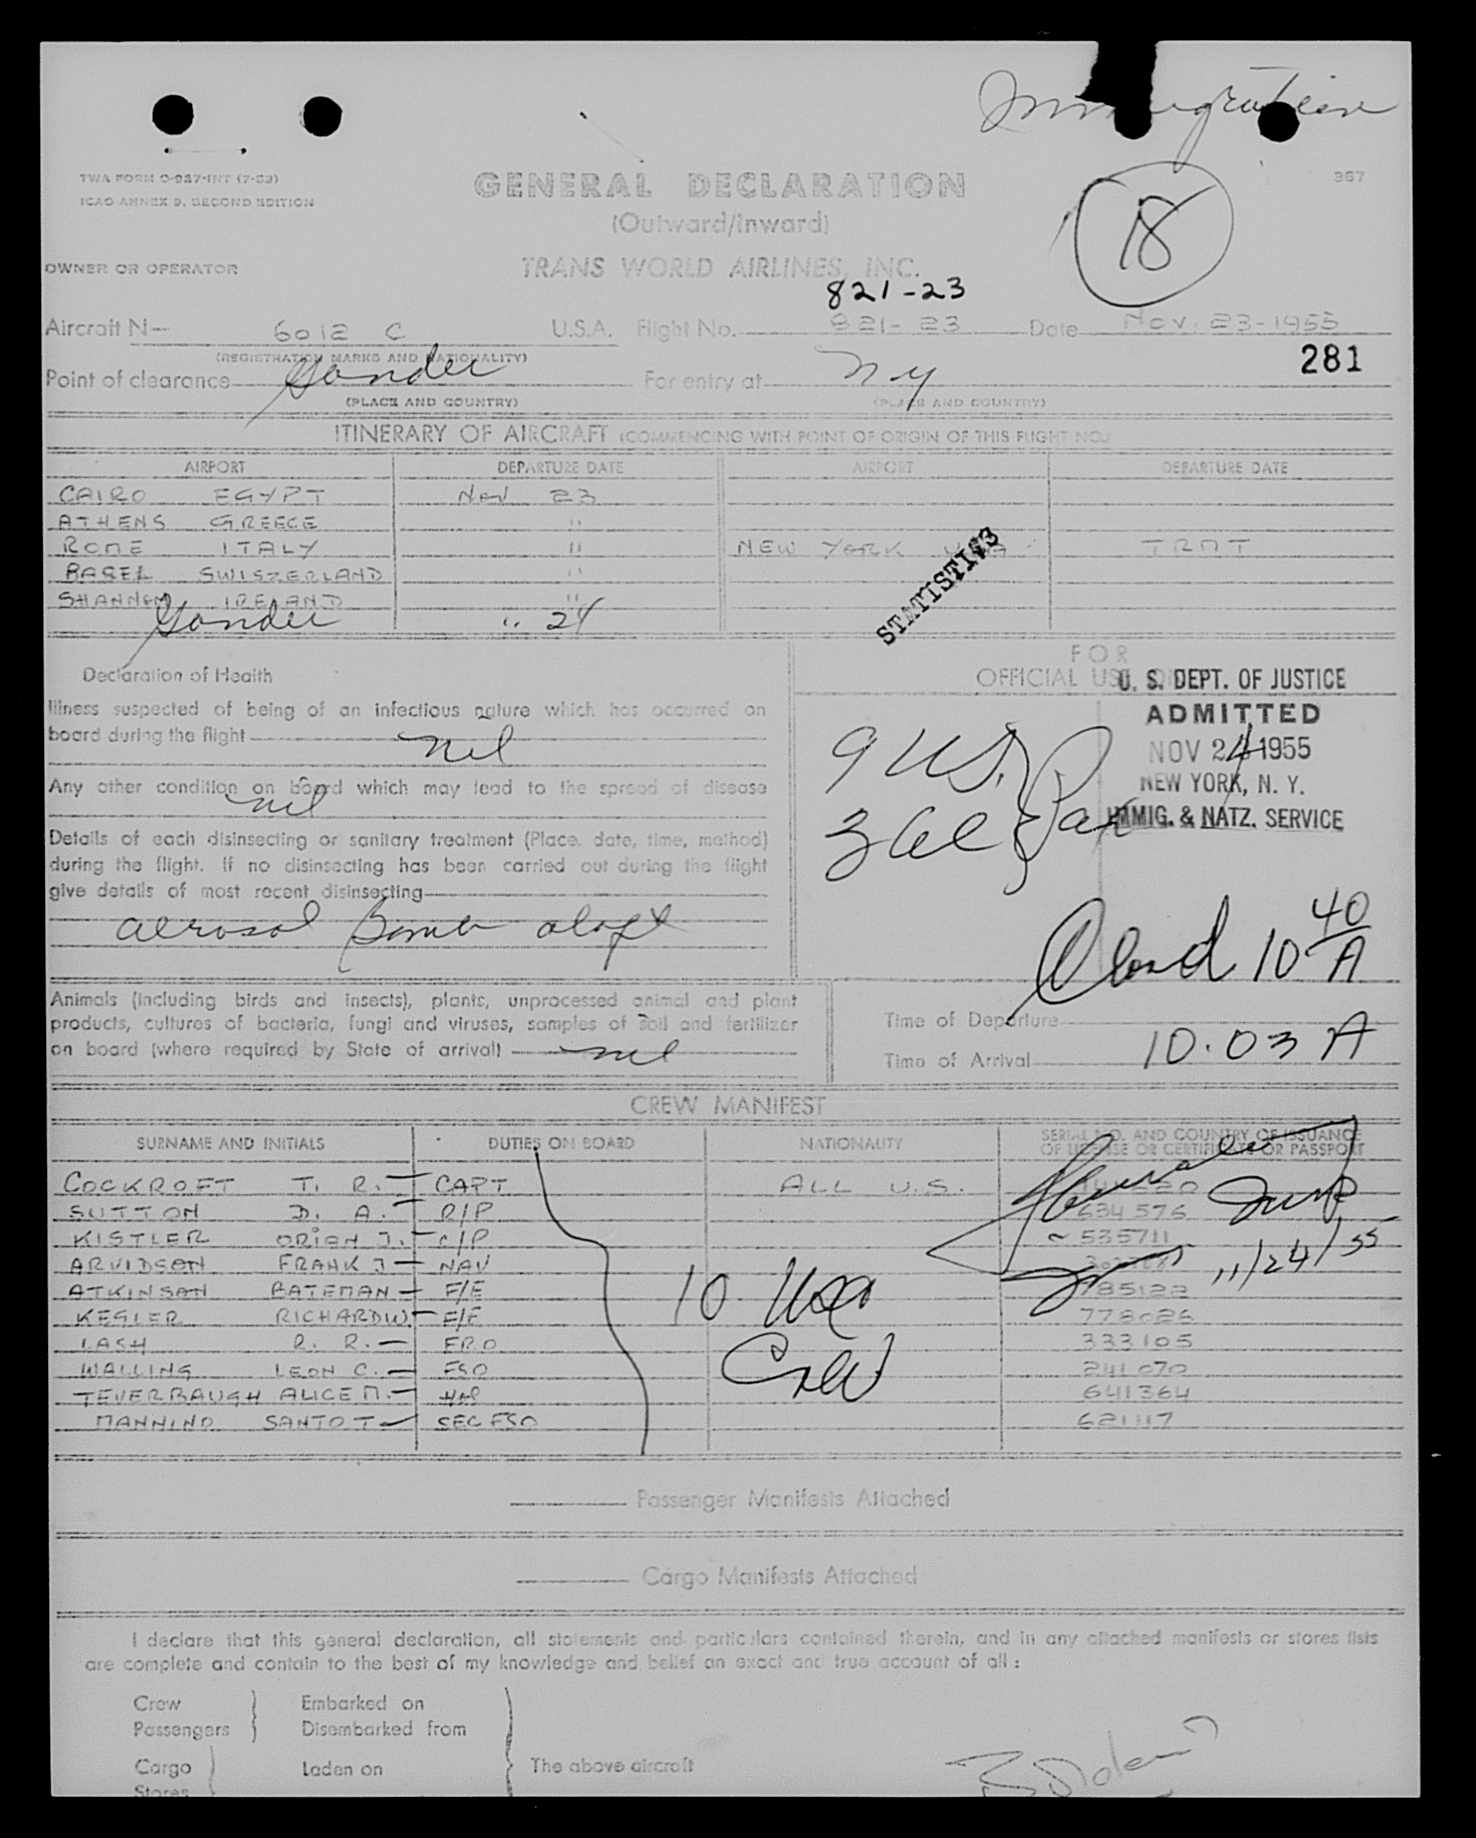 Immigration
TWA FORM O-927-INT (7-53)
ICAO ANNEX 9, SECOND EDITION
GENERAL DECLARATION
(Outward/Inward)
18
367
OWNER OR OPERATOR
TRANS WORLD AIRLINES, INC.
821-23
Aircraft N— 6012 C U.S.A. Flight No. 821-23 Date Nov. 23-1955
(REGISTRATION MARKS AND NATIONALITY)
281
Point of clearance Gander For entry at NY
(PLACE AND COUNTRY) (PLACE AND COUNTRY)
ITINERARY OF AIRCRAFT (COMMENCING WITH POINT OF ORIGIN OF THIS FLIGHT NO.)
AIRPORT DEPARTURE DATE AIRPORT DEPARTURE DATE
CAIRO EGYPT Nov 23
ATHENS GREECE "
ROME ITALY " NEW YORK USA TRMT
BASEL SWISZERLAND "
SHANNON IRELAND "
Gander " 24
STATISTICS
Declaration of Health
Illness suspected of being of an infectious nature which has occurred on
board during the flight nil
Any other condition on board which may lead to the spread of disease
nil
Details of each disinsecting or sanitary treatment (Place, date, time, method)
during the flight. If no disinsecting has been carried out during the flight
give details of most recent disinsecting
aerosol Bomb aloft
FOR
OFFICIAL USE
U. S. DEPT. OF JUSTICE
ADMITTED
NOV 24 1955
NEW YORK, N. Y.
IMMIG. & NATZ. SERVICE
9 US
3 Al Pax
10 40 A
Animals (including birds and insects), plants, unprocessed animal and plant
products, cultures of bacteria, fungi and viruses, samples of soil and fertilizer
on board (where required by State of arrival) nil
Time of Departure
Time of Arrival 10.03 A
CREW MANIFEST
SURNAME AND INITIALS DUTIES ON BOARD NATIONALITY SERIAL NO. AND COUNTRY OF ISSUANCE
OF LICENSE OR CERTIFICATE OR PASSPORT
COCKROFT T. R. CAPT ALL U.S.
SUTTON D. A. R/P 634576
KISTLER ORION J. C/P 535711
ARVIDSON FRANK J NAV
ATKINSON BATEMAN F/E 785122
KEGLER RICHARD W F/E 778026
LASH R. R. FRO 333105
WALLING LEON C. FSO 241070
TEVERBAUGH ALICE M. Hos 641364
MANNINO SANTO T SEC FSO 621117
10 USA
Crew
11/24/55
Passenger Manifests Attached
Cargo Manifests Attached
I declare that this general declaration, all statements and particulars contained therein, and in any attached manifests or stores lists
are complete and contain to the best of my knowledge and belief an exact and true account of all :
Crew Embarked on
Passengers Disembarked from
Cargo Laden on The above aircraft
Stores